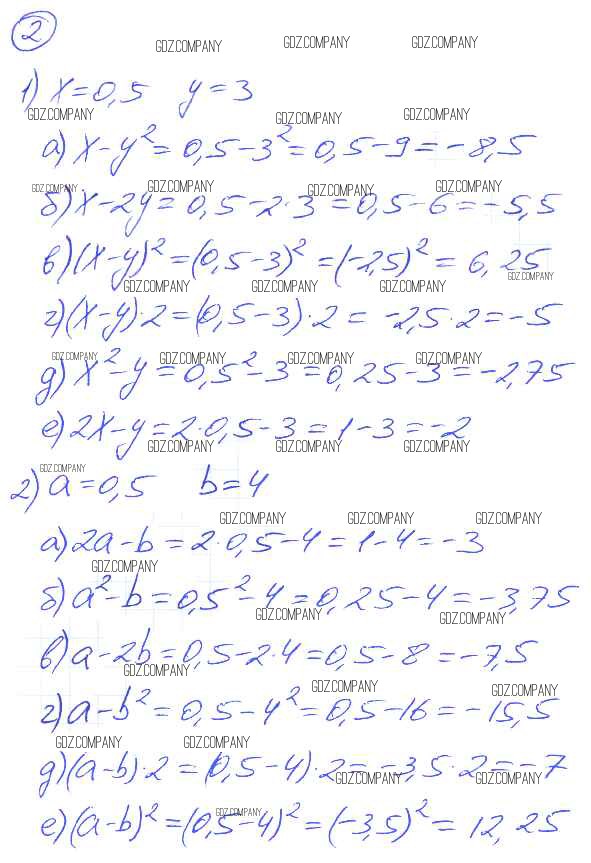 2
GDZ.COMPANY GDZ.COMPANY GDZ.COMPANY
1) x=0,5 y=3
GDZ.COMPANY GDZ.COMPANY GDZ.COMPANY
а) x-y²=0,5-3²=0,5-9=-8,5
GDZ.COMPANY GDZ.COMPANY GDZ.COMPANY GDZ.COMPANY
б) x-2y=0,5-2·3=0,5-6=-5,5
в) (x-y)²=(0,5-3)²=(-2,5)²=6,25
GDZ.COMPANY GDZ.COMPANY GDZ.COMPANY GDZ.COMPANY
г) (x-y)·2=(0,5-3)·2=-2,5·2=-5
GDZ.COMPANY GDZ.COMPANY GDZ.COMPANY GDZ.COMPANY
д) x²-y=0,5²-3=0,25-3=-2,75
е) 2x-y=2·0,5-3=1-3=-2
GDZ.COMPANY GDZ.COMPANY GDZ.COMPANY
GDZ.COMPANY
2) a=0,5 b=4
GDZ.COMPANY GDZ.COMPANY GDZ.COMPANY
а) 2a-b=2·0,5-4=1-4=-3
GDZ.COMPANY
б) a²-b=0,5²-4=0,25-4=-3,75
GDZ.COMPANY GDZ.COMPANY
в) a-2b=0,5-2·4=0,5-8=-7,5
GDZ.COMPANY GDZ.COMPANY GDZ.COMPANY
г) a-b²=0,5-4²=0,5-16=-15,5
GDZ.COMPANY GDZ.COMPANY
д) (a-b)·2=(0,5-4)·2=-3,5·2=-7
GDZ.COMPANY GDZ.COMPANY
GDZ.COMPANY
е) (a-b)²=(0,5-4)²=(-3,5)²=12,25